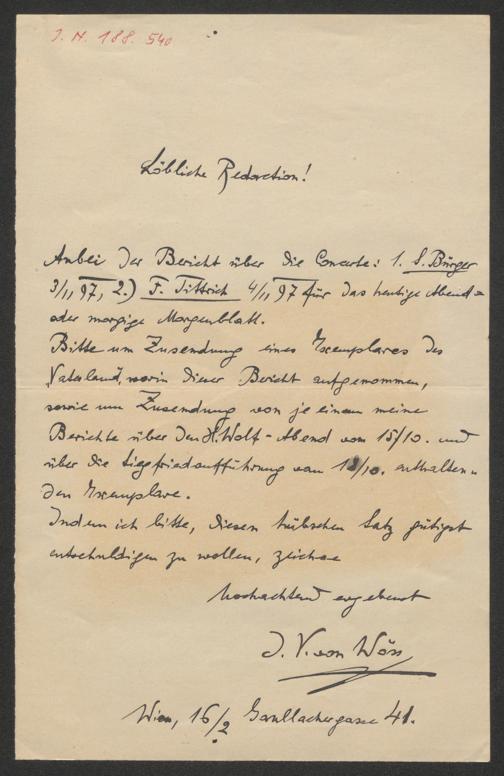 I. N. 188. 540
Löbliche Redaction!
Anbei der Bericht über die Concerte: 1. S. Bürger
3/11 97, 2.) F. Tittrich 4/11 97 für das heutige Abend-
oder morgige Morgenblatt.
Bitte um Zusendung eines Exemplares des
„Vaterland“, worin dieser Bericht aufgenommen,
sowie um Zusendung von je einem meine
Berichte über den H. Wolf-Abend vom 15/10. und
über die Siegfriedaufführung vom 10. enthalten-
den Exemplare.
Indem ich bitte, diesen hübschen Satz gütigst
entschuldigen zu wollen, zeichne
hochachtend ergebenst
J. V. von Wöss
Wien, 16/2 Ganllachergasse 41.